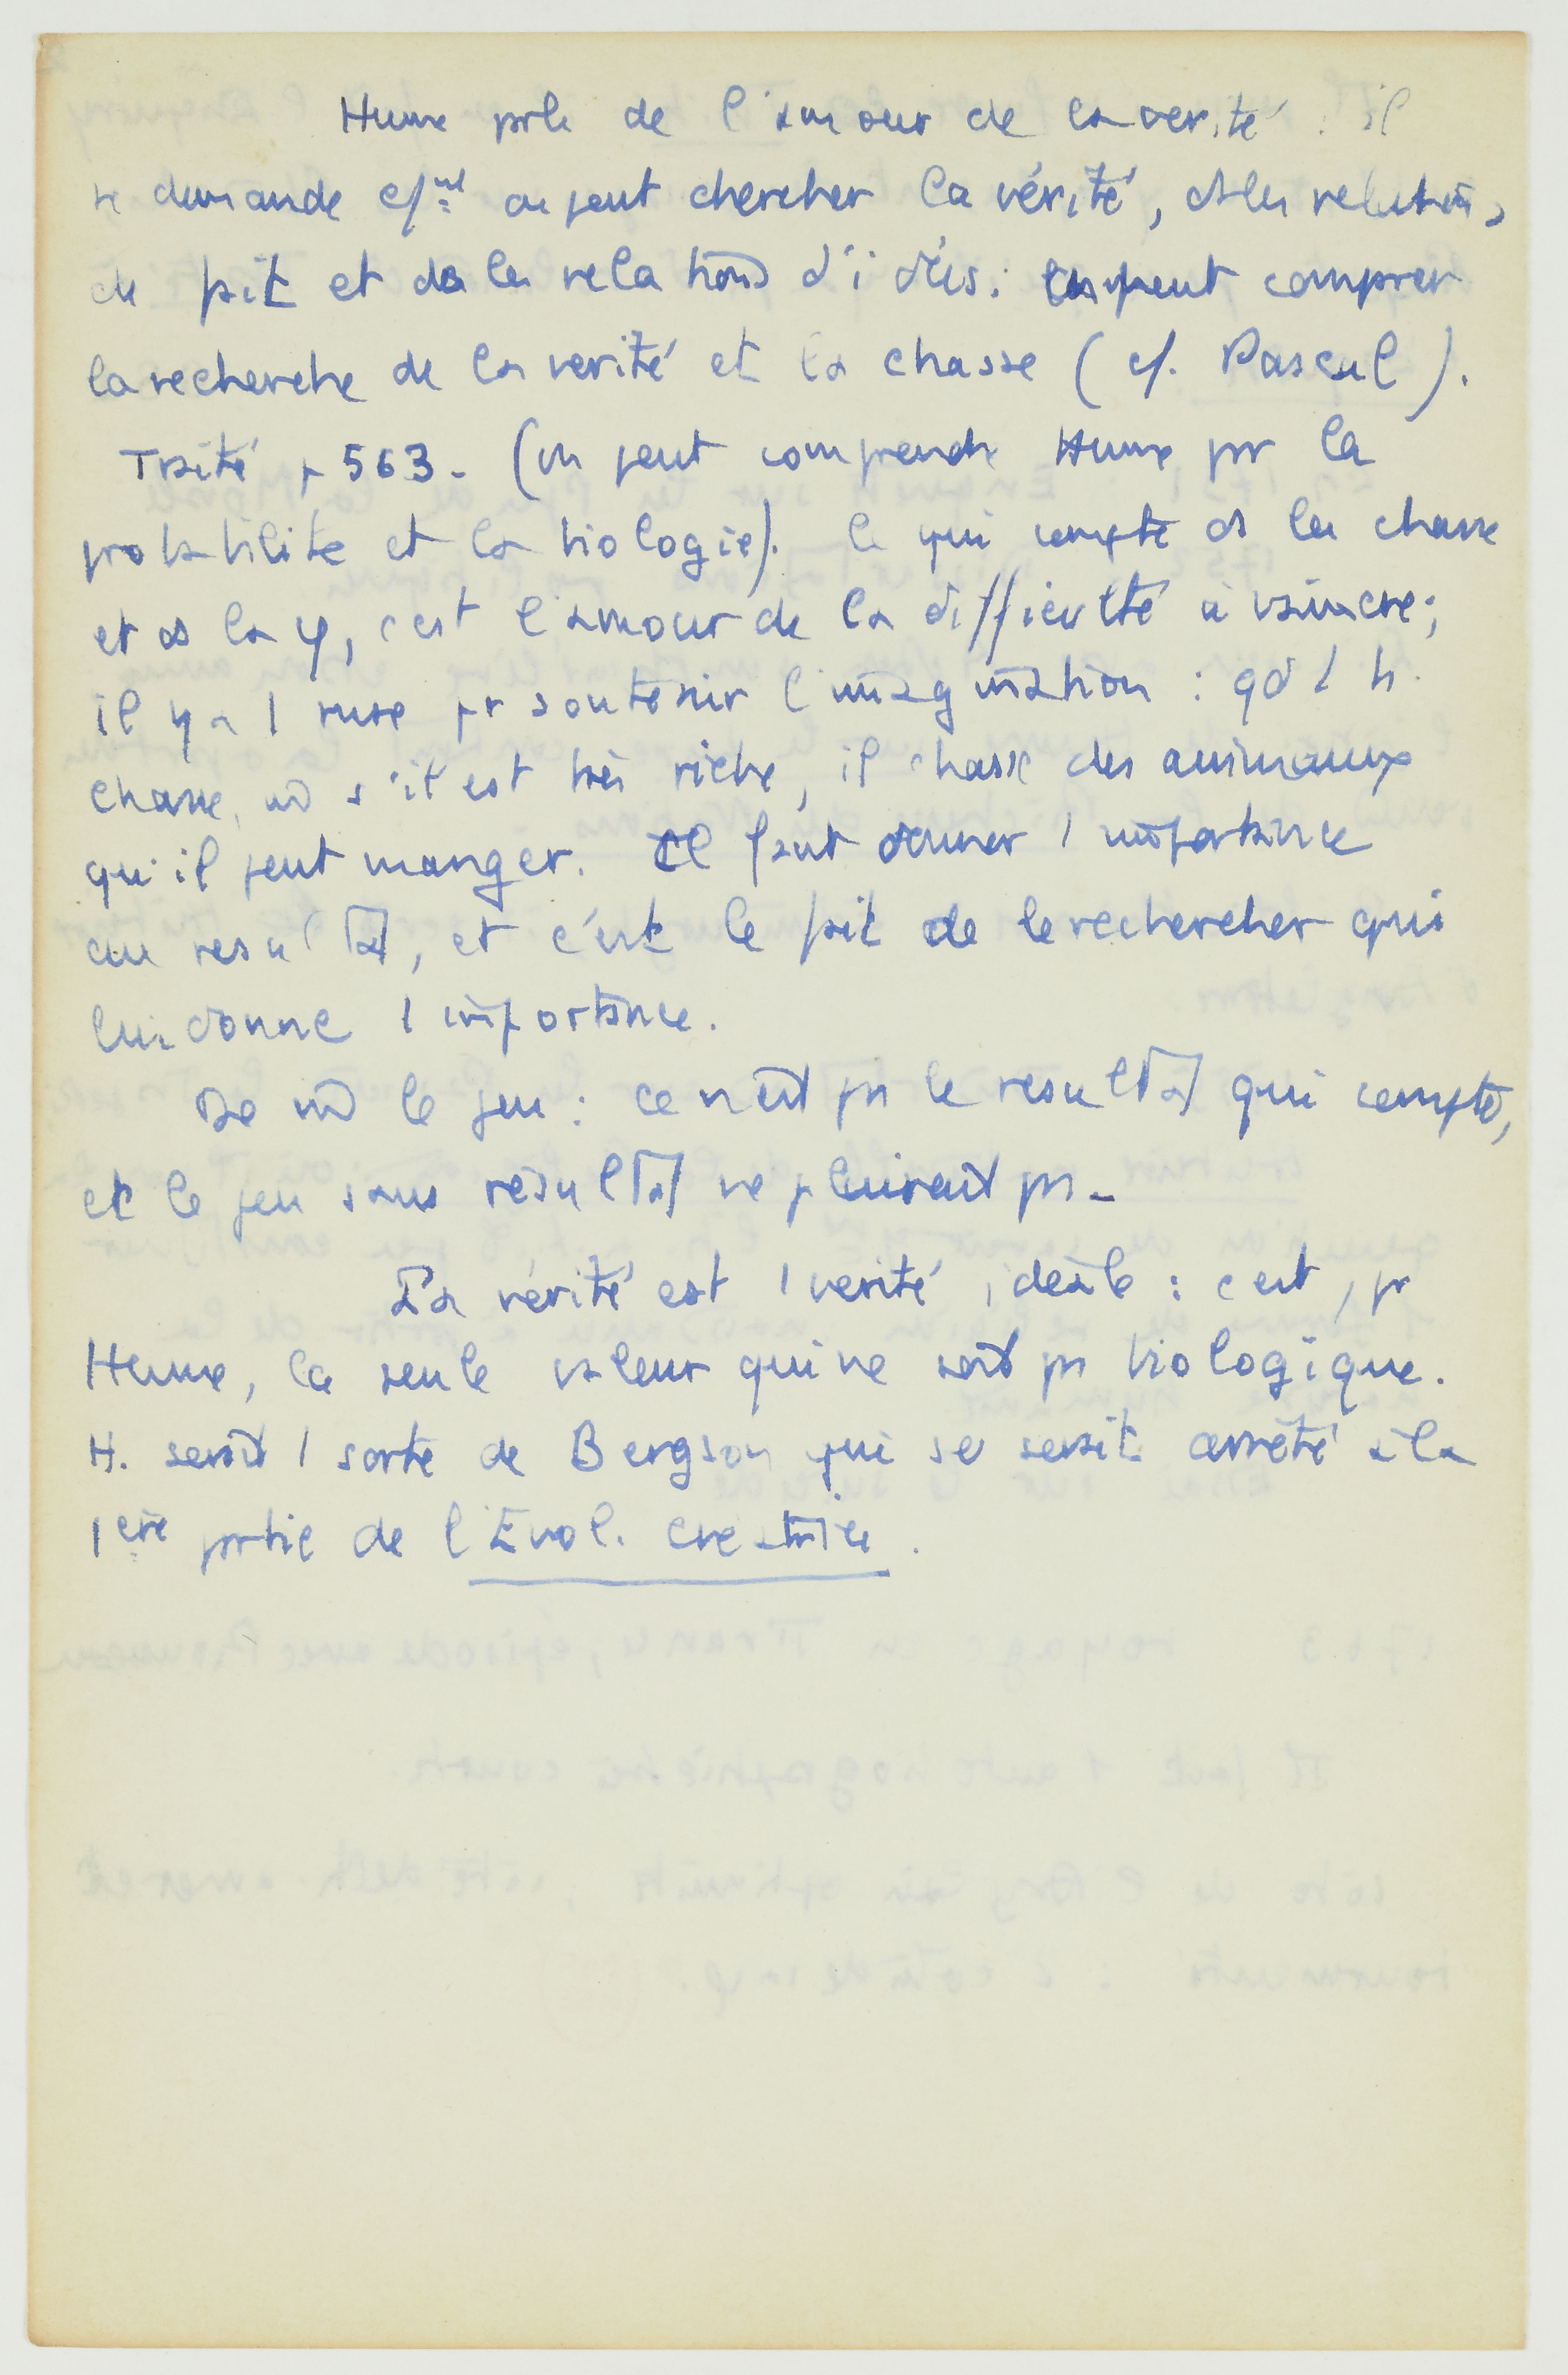 Hume parle de l'amour de la vérité : il
se demande c/mt on peut chercher la vérité, ds les relations
de fait et ds les relations d'idées : on peut comparer
la recherche de la verité et la chasse (cf. Pascal).
Traité p 563 - (on peut comprendre Hume par la
probabilite et la biologie). Ce qui compte ds la chasse
et ds la φ, c'est l'amour de la difficulté à vaincre ;
il y a 1 ruse pr soutenir l'imagination : qd 1 h.
chasse, m̂ s'il est très riche, il chasse des animaux
qu'il peut manger. Il faut donner 1 importance
au resultat, et c'est le fait de le rechercher qui
lui donne 1 importance.
De m̂ le jeu : ce n'est pas le resultat qui compte,
et le jeu sans résultat ne plairait pas -
La vérité est 1 verité idéale : c'est, pr
Hume, la seule valeur qui ne soit pas biologique.
H. serait 1 sorte de Bergson qui se serait arrêté à la
1ère partie de l'Evol. creatrice.